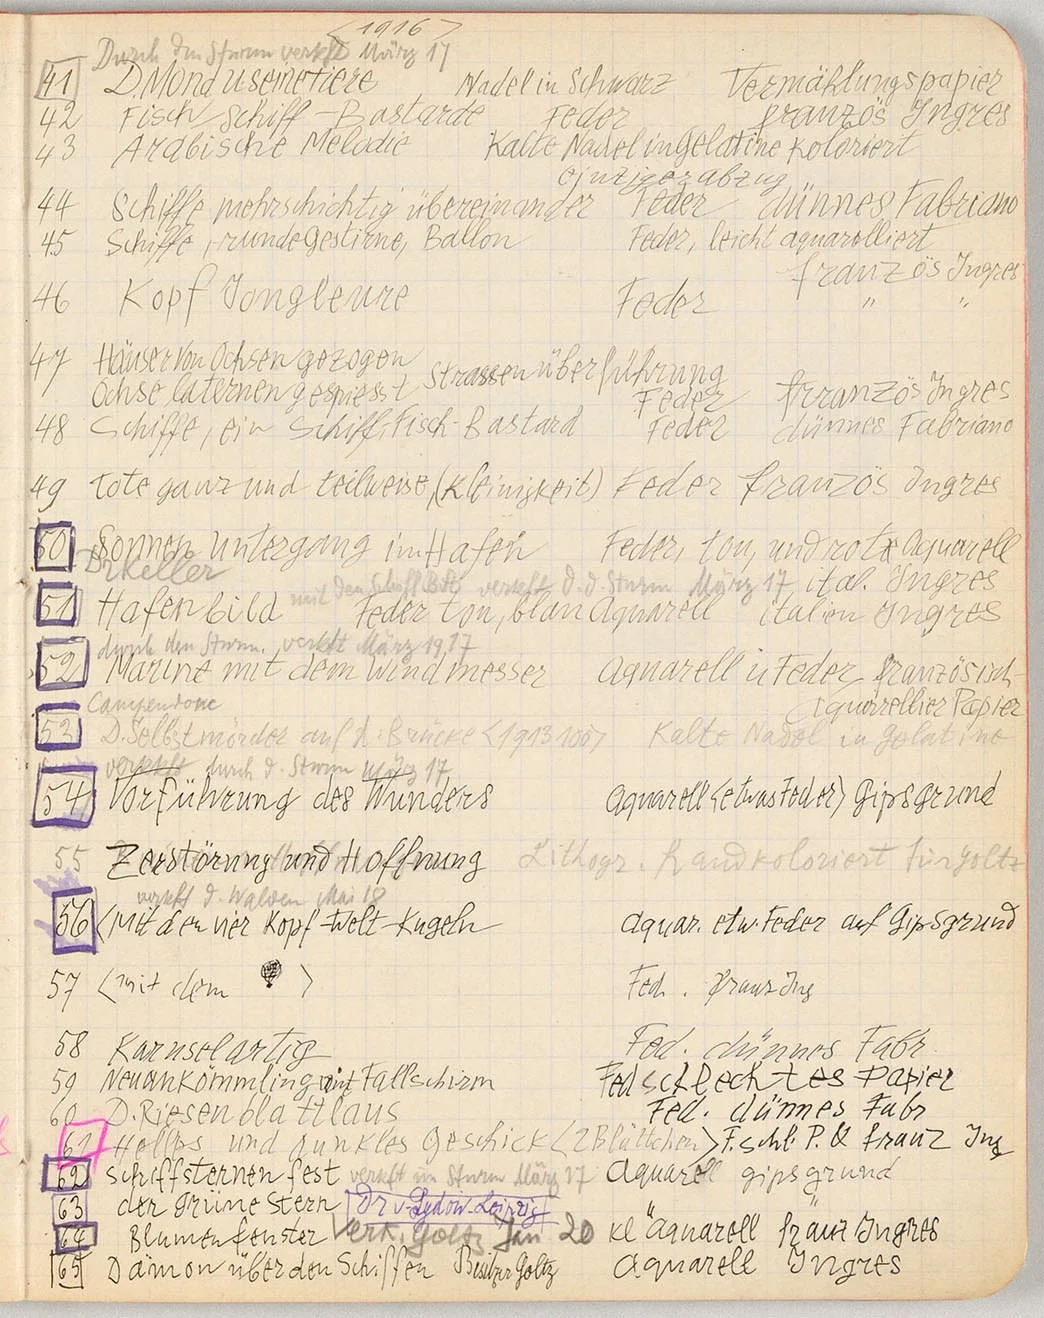 <1916>
Durch den Sturm verkft März 17
41 D. Mond u seine Tiere Nadel in Schwarz Vermählungspapier
42 Fisch Schiff-Bastarde Feder französ Ingres
43 Arabische Melodie Kalte Nadel in Gelatine koloriert
einziger abzug
44 Schiffe, mehrschichtig übereinander Feder dünnes Fabriano
45 Schiffe, runde Gestirne, Ballon Feder, leicht aquarelliert
französ Ingres
46 Kopf Jongleure Feder " "
47 Häuser von Ochsen gezogen
Ochse laternen gespiesst Strassenüberführung
Feder französ Ingres
48 Schiffe, ein Schiff-Fisch-Bastard Feder dünnes Fabriano
49 Tote ganz und teilweise, (Kleinigkeit) Feder französ Ingres
50 Sonnen untergang im Hafen Feder, ton, und rote Aquarell
Dr Keller ital. Ingres
mit dem verkft d. d. Sturm März 17
51 Hafenbild Feder ton, blau Aquarell italien Ingres
durch den Sturm, verkft März 1917
52 Marine mit dem Windmesser Aquarell u Feder französisch-
Aquarellier Papier
Campendonc
53 D. Selbstmörder auf d. Brücke <1913 100> Kalte Nadel in gelatine
verkft durch d. Sturm März 17
54 Vorführung des Wunders Aquarell <etwas Feder> Gipsgrund
55 Zerstörung und Hoffnung Lithogr. handkoloriert für Goltz
verkft d. Walden Mai 18
56 <Mit den vier Kopf-Welt-Kugeln aquar. etw. Feder auf Gipsgrund
57 <mit dem > Fed. franz Ing
58 Karusselartig Fed. dünnes Fabr.
59 Neuankömmling mit Fallschirm Fed schlechtes Papier
60 D. Riesenblattlaus Fed. dünnes Fabr
61 Helles und dunkles Geschick <2 Blättchen> F. schl. P. & franz Ing
62 Schiffsternenfest verkft im Sturm März 17 Aquarell gipsgrund
63 der grüne Stern Dr v. Sydow. Leipzig
64 Blumenfenster Verk. Goltz Jan 20 kl Aquarell franz Ingres
65 Dämon über den Schiffen Besitzer Goltz Aquarell Ingres